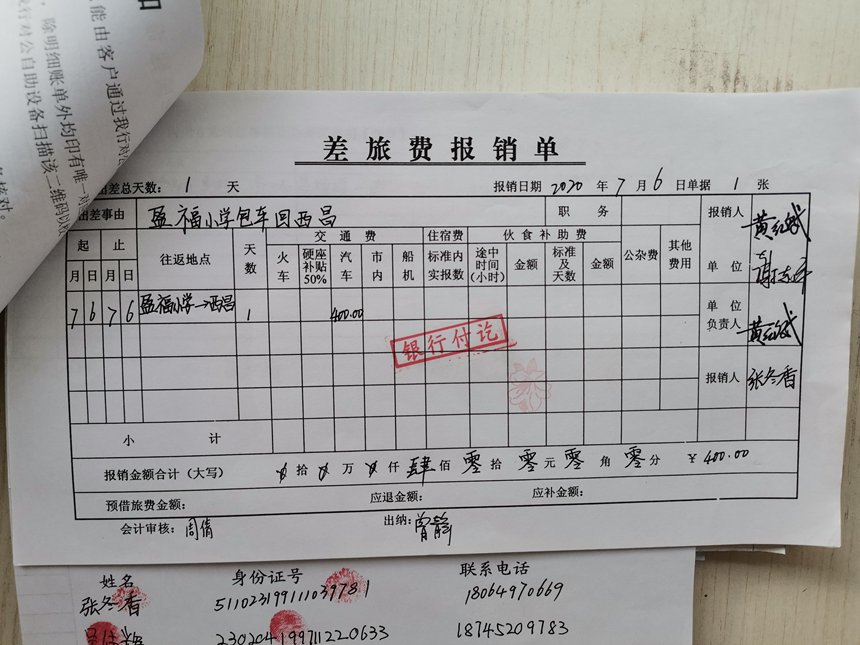 能由客户通过我行对
除明细账单外均印有唯一对
行对公自助设备扫描该二维码以
核对。
差旅费报销单
出差总天数：1 天 报销日期 2020 年 7 月 6 日单据 1 张
出差事由 盈福小学包车回西昌 职务 报销人
起 止 往返地点 天数 交通费 住宿费 伙食补助费 公杂费 其他费用 单位
月 日 月 日 火车 硬座补贴50% 汽车 市内 船机 标准内实报数 途中时间(小时) 金额 标准及天数 金额
7 6 7 6 盈福小学→西昌 1 400.00 单位负责人
银行付讫
报销人 张冬香
小计
报销金额合计(大写) 拾 万 仟 肆 佰 零 拾 零 元 零 角 零 分 ￥400.00
预借旅费金额： 应退金额： 应补金额：
会计审核：周倩 出纳：曾静
姓名 身份证号 联系电话
张冬香 511023199111039781 18064970669
230204199711220633 18745209783